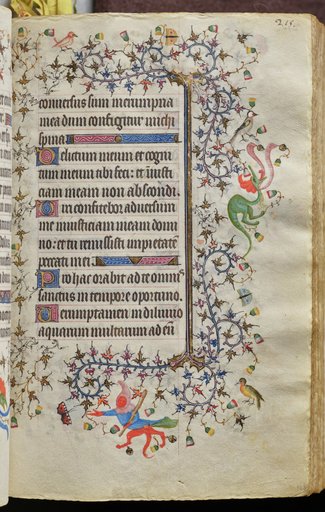 conuersus sum in erumpna
mea dum configitur michi
spina
Delictum meum et cogni
tum meum tibi feci: et iniusti
ciam meam non abscondi.
Dixi confitebor aduersum
me iniusticiam meam domi
no: et tu remisisti impietatē
peccati mei.
Pro hac orabit ad te omnis
sanctus in tempore oportuno.
Verumptamen in diluuio
aquarum multarum ad eū